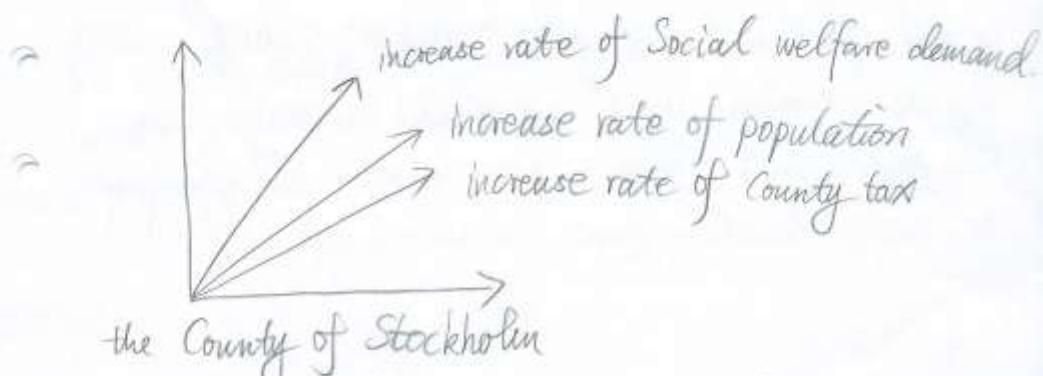 increase rate of Social welfare demand.
increase rate of population
increase rate of County tax
the County of Stockholm